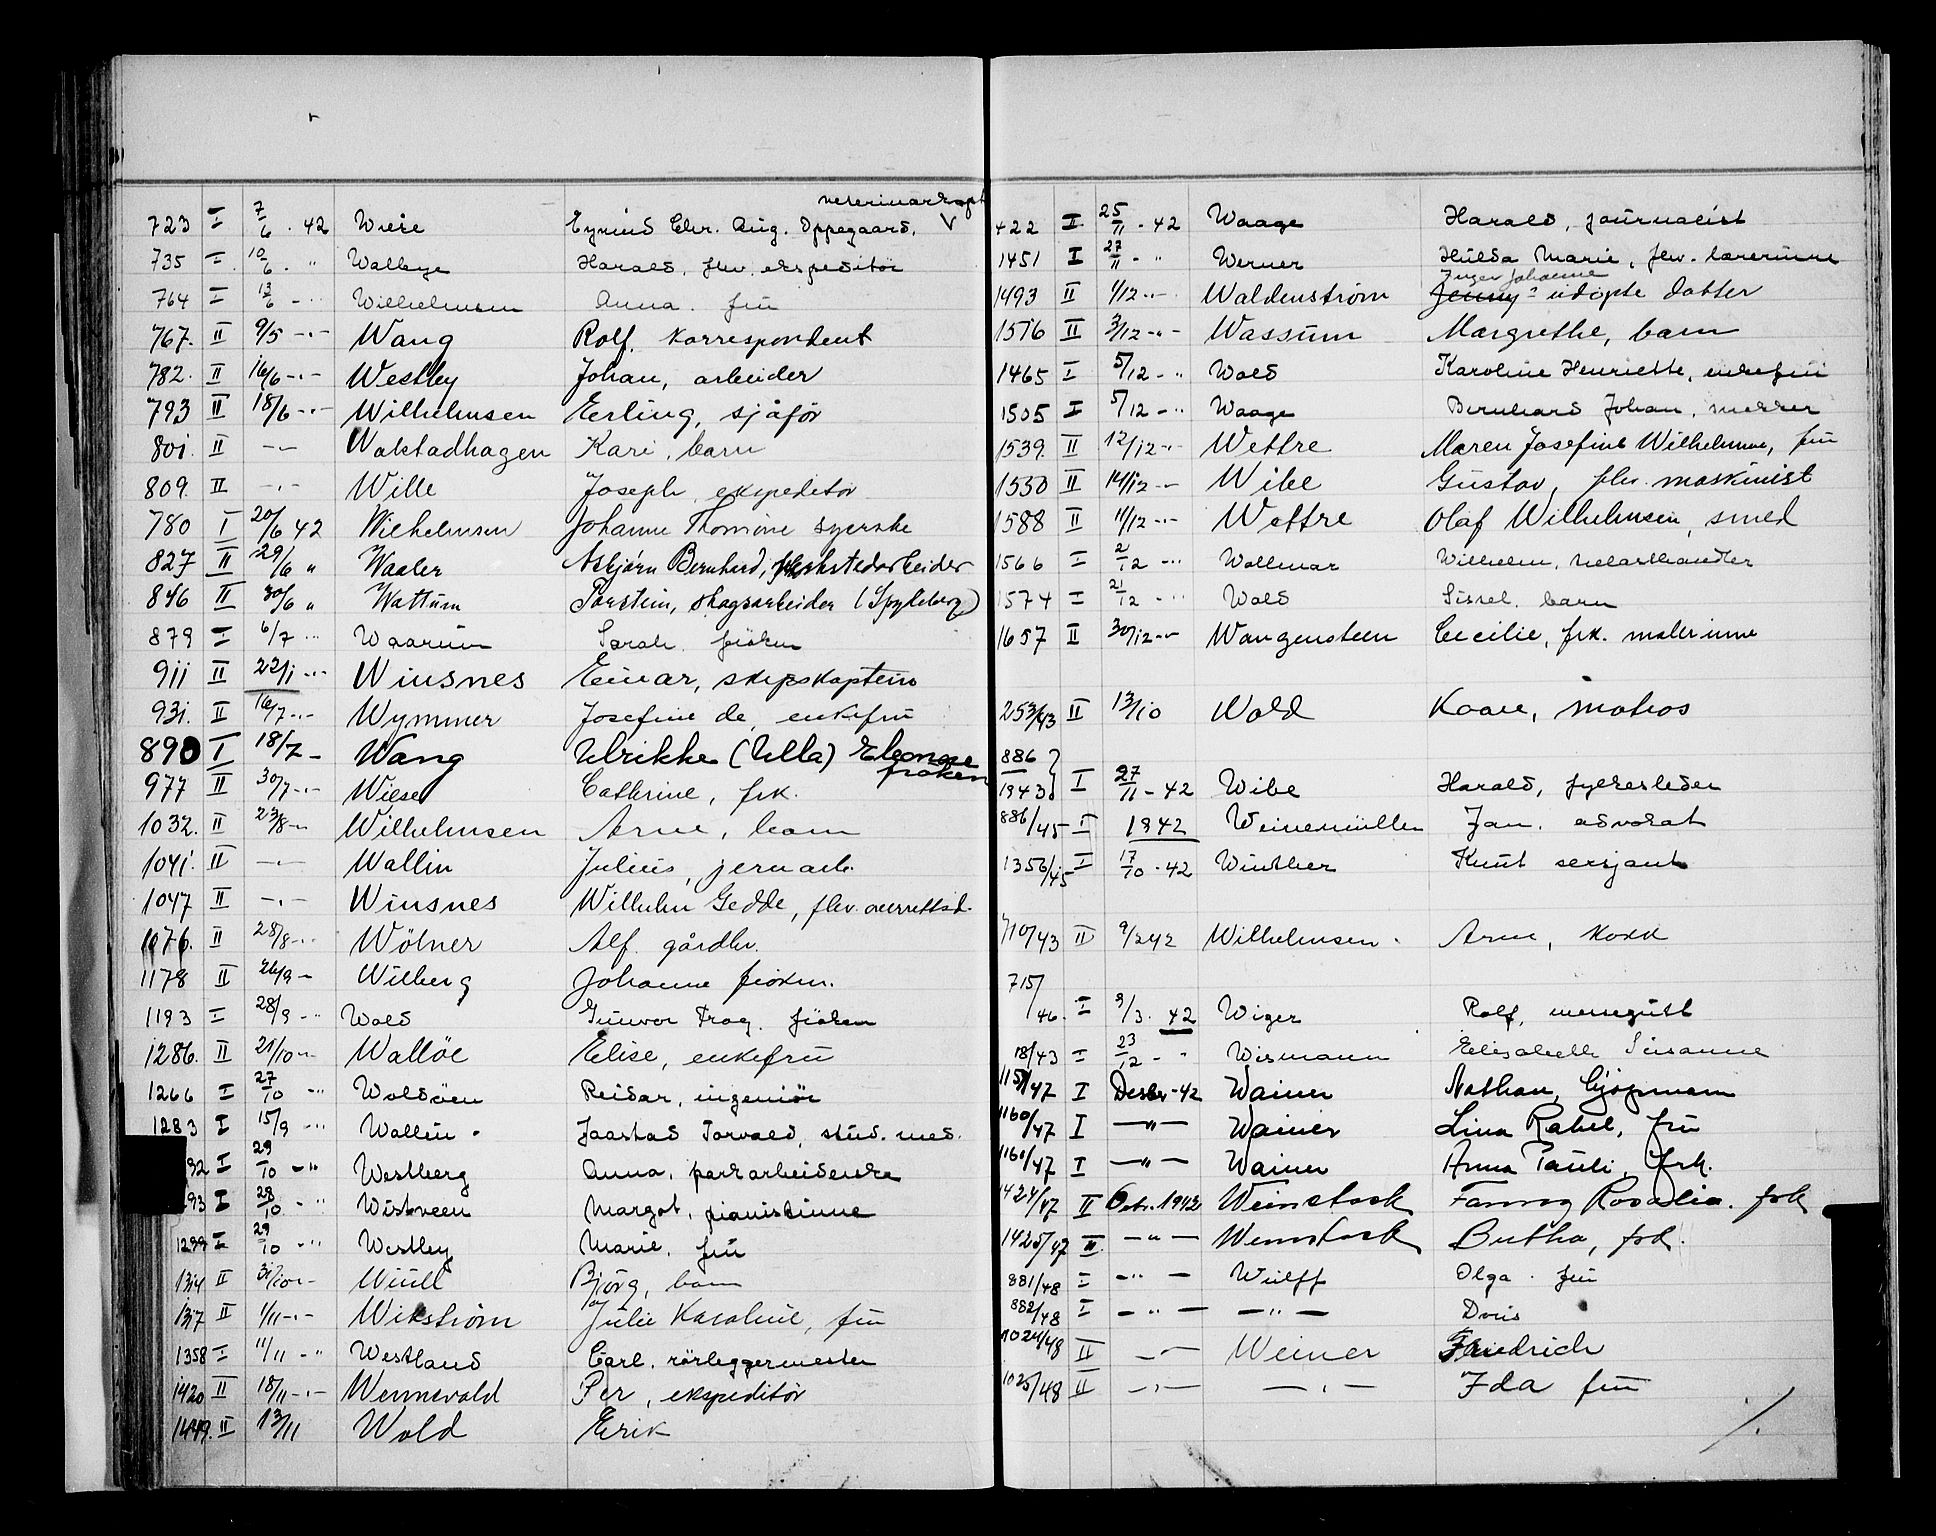 veterinærkapt
723 I 7/6 . 42 Wiese Eyvind Chr. Aug. Oppegaard, V
735 I 10/6 . " Walbye Harald, flv. ekspeditør
764 I 13/6 - " Wilhelmsen Anna. fru
767. II 9/5 -"- Wang Rolf, korrespondent
782. II 16/6 -"- Westby Johan, arbeider
793 II 18/6 -"- Wilhelmsen Erling, sjåfør
801. II -"- Walstadhagen Kari, barn
809. II -"- Wille Joseph, ekspeditør
780 I 20/6 42 Wilhelmsen Johanne Thomine syerske
827 II 29/6 " Waaler Asbjørn Bernhard, verkstedarbeider
846 II 30/6 " Wattum Torstein, skogsarbeider (Spydeberg)
879 I 6/7 " Waarum Sarah. frøken
911 II 22/1 -"- Winsnes Einar, skipskaptein
931. II 16/7 -"- Wymmer Josefine de, enkefru
890 I 18/7 - Wang Ulrikke (Ulla) Eleonore frøken
977 II 30/7 -"- Wiese Cathrine, frk.
1032. II 23/8 -"- Wilhelmsen Arne, barn
1041. II -"- Wallin Julius, jernarb.
1047 II -"- Winsnes Wilhelm Gedde, flv. overrettsd.
1076. II 28/8 -"- Wölner Alf, gårdbr.
1178 II 26/9 - Wilberg Johanne frøken.
1193 I 28/9 - " Wold Gunvor Frog. frøken
1286. II 21/10 -"- Walløe Elise, enkefru
1266 I 27/10 - " Woldøen Reidar, ingeniør
1283 I 15/9 - " Wallin. Jaastad Torvald, stud. med.
92 I 29/10 - " Westberg Anna, parkarbeiderske
93 I 28/10 - " Wistveen Margot, pianistinne
1299 I 29/10 - " Westbey Marie, fru
1314 II 31/10 - Wiull Bjørg, barn
1317 II 1/11 -"- Wikstrøm Julie Karoline, fru
1358 I 11/11 - " Westland Carl, rørleggermester
1420 II 18/11 -"- Wennevold Per, ekspeditør
1449. II 13/11 Wold Erik
422 II 25/11 . 42 Waage Harald, journalist
1451 I 27/11 - " Werner Hulda Marie, flv. lærerinne
Inger Johanne
1493 II 1/12 -"- Waldenström Jenny? udöpte datter
1516 II 3/12 -"- Wassum Margrethe, barn
1465 I 5/12 - " Wold Karoline Henriette, enkefru
1505 I 5/12 - " Waage Bernhard Johan, snekker
1539. II 12/12 -"- Wettre Maren Josefine Wilhelmine, fru
1550 II 14/12 -"- Wibe Gustav, flv. maskinist
1588 II 11/12 -"- Wettre Olaf Wilhelmsen, smed
1566 I 2/12 - " Wollmar Wilhelm,
1574 I 21/12 - " Wold Sissel. barn
1657 II 30/12 -"- Wangensteen Cecilie, frk. malerinne
253/43 II 13/10 Wold Kaare, matros
886
1943 } I 27/11 - 42 Wibe Harald, fylkesleder
886/45 I 1942 Weinemüller Jan. advokat
1356/45 I 17/10 . 42 Winther Knut sersjant
710/43 II 9/2 42 Wilhelmsen. Arne, kokk
715/46. I 9/3. 42 Wiger Rolf,
18/43 I 23/12 - " Wismann Elisabeth Susanne
1159/47 I Desbr -42 Wainer Nathan, kjøpmann
1160/47 I -"- Wainer Lina Rahel, fru
1161/47 I -"- Wainer Anna Pauli, frk.
1424/47 II Octr. 1942 Weinstock Fanny Rosalia. frk
1425/47 II. -"- Weinstock Bertha, frk.
881/48 I -"- Wulff Olga. fru
882/48 I -"- -"- Doris
1024/48 II -"- Weiner Friedrich
1025/48 II -"- -"- Ida fru